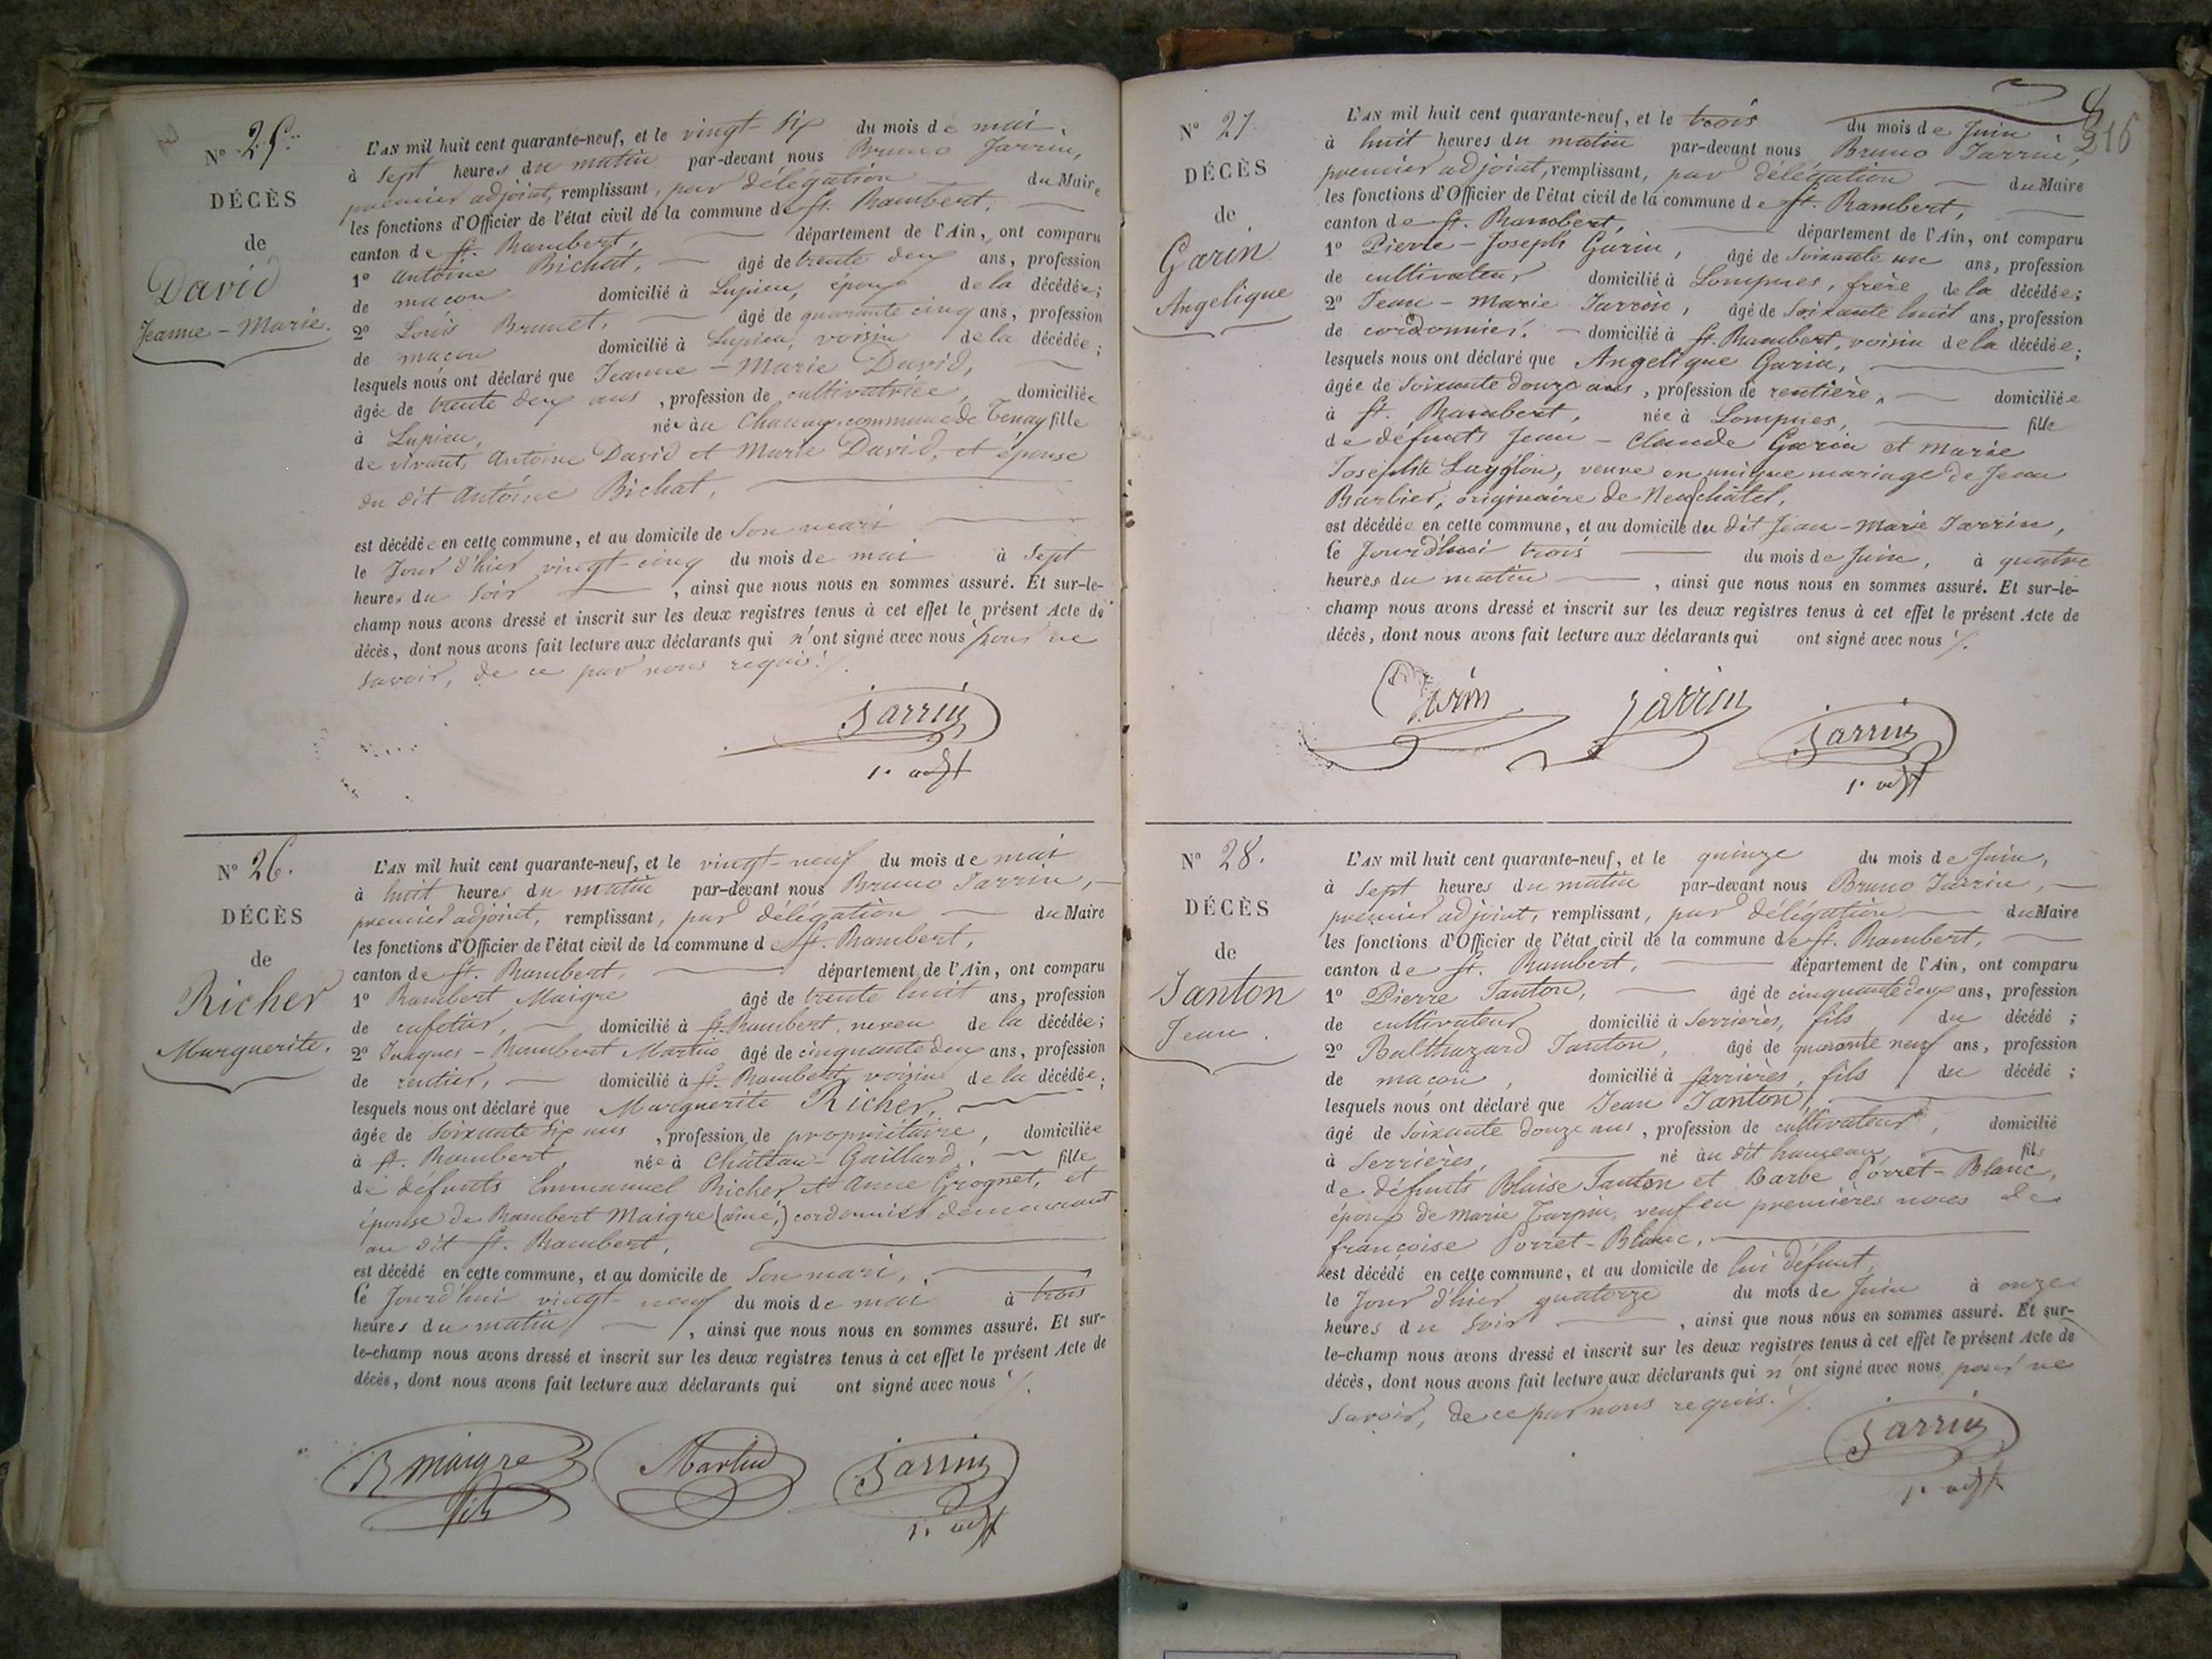 N° 25.
DÉCÈS
de
David
Jeanne-Marie.
L'AN mil huit cent quarante-neuf, et le vingt-six du mois de mai,
à sept heures du matin par-devant nous Bruno Jarrin,
premier adjoint, remplissant, par délégation du Maire
les fonctions d'Officier de l'état civil de la commune de St. Rambert,
canton de St. Rambert, département de l'Ain, ont comparu
1° Antoine Bichat, âgé de trente deux ans, profession
de maçon domicilié à Lupieu, époux de la décédée;
2° Louis Brunet, âgé de quarante cinq ans, profession
de maçon domicilié à Lupieu, voisin de la décédée;
lesquels nous ont déclaré que Jeanne-Marie David,
âgée de trente deux ans, profession de cultivatrice, domiciliée
à Lupieu, née au commune de Tenay fille
de vivants Antoine David et Marie David, et épouse
du dit Antoine Bichat,
est décédée en cette commune, et au domicile de son mari
le jour d'hier vingt-cinq du mois de mai à sept
heures du soir, ainsi que nous nous en sommes assuré. Et sur-le-
champ nous avons dressé et inscrit sur les deux registres tenus à cet effet le présent Acte de
décès, dont nous avons fait lecture aux déclarants qui n'ont signé avec nous pour ne
savoir, de ce par nous requis ./.
Jarrin
1er adjt
N° 26.
DÉCÈS
de
Richer
Marguerite.
L'AN mil huit cent quarante-neuf, et le vingt-neuf du mois de mai
à huit heures du matin par-devant nous Bruno Jarrin,
premier adjoint, remplissant, par délégation du Maire
les fonctions d'Officier de l'état civil de la commune de St. Rambert,
canton de St. Rambert, département de l'Ain, ont comparu
1° Rambert Maigre âgé de trente huit ans, profession
de cafetier, domicilié à St. Rambert, neveu de la décédée;
2° Jacques-Rambert Martin âgé de cinquante deux ans, profession
de rentier, domicilié à St. Rambert, voisin de la décédée;
lesquels nous ont déclaré que Marguerite Richer,
âgée de soixante six ans, profession de propriétaire, domiciliée
à St. Rambert, née à Château-Gaillard, fille
de défunts Emmanuel Richer et Anne Grognet, et
épouse de Rambert Maigre (aîné,) cordonnier demeurant
au dit St. Rambert,
est décédé en cette commune, et au domicile de son mari,
le jourd'hui vingt-neuf du mois de mai à trois
heures du matin, ainsi que nous nous en sommes assuré. Et sur-
le-champ nous avons dressé et inscrit sur les deux registres tenus à cet effet le présent Acte de
décès, dont nous avons fait lecture aux déclarants qui ont signé avec nous ./.
R maigre
fils
Martin
Jarrin
1er adjt
216
N° 27
DÉCÈS
de
Garin
Angelique
L'AN mil huit cent quarante-neuf, et le trois du mois de Juin,
à huit heures du matin par-devant nous Bruno Jarrin,
premier adjoint, remplissant, par délégation du Maire
les fonctions d'Officier de l'état civil de la commune de St. Rambert,
canton de St. Rambert, département de l'Ain, ont comparu
1° Pierre-Joseph Garin, âgé de soixante un ans, profession
de cultivateur domicilié à Lompnes, frère de la décédée;
2° Jean-Marie Jarrin, âgé de soixante huit ans, profession
de cordonnier, domicilié à St. Rambert, voisin de la décédée;
lesquels nous ont déclaré que Angelique Garin,
âgée de soixante douze ans, profession de rentière, domiciliée
à St. Rambert, née à Lompnes, fille
de défunts Jean-Claude Garin et Marie
Josephte, veuve en unique mariage de Jean
Barbier, originaire de Neufchâtel,
est décédée en cette commune, et au domicile du dit Jean-Marie Jarrin,
le jourd'hui trois du mois de Juin, à quatre
heures du matin, ainsi que nous nous en sommes assuré. Et sur-le-
champ nous avons dressé et inscrit sur les deux registres tenus à cet effet le présent Acte de
décès, dont nous avons fait lecture aux déclarants qui ont signé avec nous ./.
Garin
Jarrin
Jarrin
1er adjt
N° 28.
DÉCÈS
de
Tanton
Jean.
L'AN mil huit cent quarante-neuf, et le quinze du mois de Juin,
à sept heures du matin par-devant nous Bruno Jarrin,
premier adjoint, remplissant, par délégation du Maire
les fonctions d'Officier de l'état civil de la commune de St. Rambert,
canton de St. Rambert, département de l'Ain, ont comparu
1° Pierre Tanton, âgé de cinquante deux ans, profession
de cultivateur domicilié à Serrières, fils du décédé;
2° Balthazard Tanton, âgé de quarante neuf ans, profession
de maçon, domicilié à Serrières, fils du décédé;
lesquels nous ont déclaré que Jean Tanton,
âgé de soixante douze ans, profession de cultivateur, domicilié
à Serrières, né au dit hameau, fils
de défunts Blaise Tanton et Barbe Porret-Blanc,
époux de Marie Tarpin, veuf en premières noces de
françoise Porret-Blanc,
est décédé en cette commune, et au domicile de lui défunt,
le jour d'hier quatorze du mois de Juin à onze
heures du soir, ainsi que nous nous en sommes assuré. Et sur-
le-champ nous avons dressé et inscrit sur les deux registres tenus à cet effet le présent Acte de
décès, dont nous avons fait lecture aux déclarants qui n'ont signé avec nous pour ne
savoir, de ce par nous requis ./.
Jarrin
1er adjt